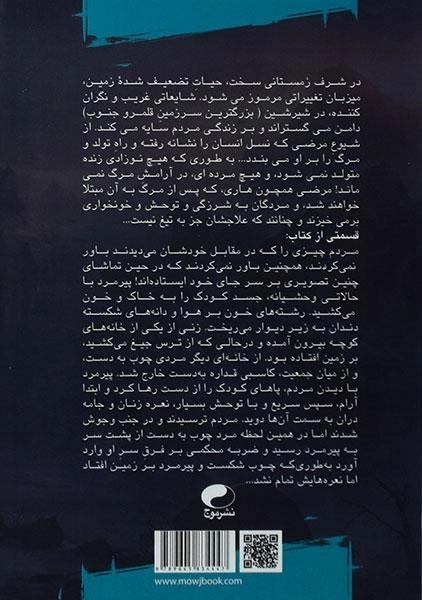 در شرف زمستانی سخت، حیاتِ تضعیف شدهٔ زمین،
میزبان تغییراتی مرموز می شود. شایعاتی غریب و نگران
کننده، در شیرشین ( بزرگترین سرزمینِ قلمرو جنوب)
دامن می گستراند و بر زندگی مردم سایه می کند. از
شیوع مرضی که نسل انسان را نشانه رفته و راه تولد و
مرگ را بر او می بندد... به طوری که هیچ نوزادی زنده
متولد نمی شود، و هیچ مرده ای در آرامش مرگ نمی
ماند! مرضی همچون هاری، که پس از مرگ به آن مبتلا
خواهند شد، و مردگان به شرزگی و توحش و خونخواری
برمی خیزند و چنانند که علاجشان جز به تیغ نیست...
قسمتی از کتاب:
مردم چیزی را که در مقابل خودشان می‌دیدند باور
نمی‌کردند، همچنین باور نمی‌کردند که در حین تماشای
چنین تصویری بر سر جای خود ایستاده‌اند! پیرمرد با
حالاتی وحشیانه، جسد کودک را به خاک و خون
می‌کشید. رشته‌های خون بر هوا و دانه‌های شکسته
دندان به زیر دیوار می‌ریخت. زنی از یکی از خانه‌های
کوچه بیرون آمده و درحالی که از ترس جیغ می‌کشید،
بر زمین افتاده بود. از خانه‌ای دیگر مردی چوب به دست،
و از میان جمعیت، کاسبی قداره به‌دست خارج شد. پیرمرد
با دیدن مردم، پاهای کودک را از دست رها کرد و ابتدا
آرام، سپس سریع و با توحش بسیار، نعره زنان و جامه
دران به سمت آن‌ها دوید. مردم ترسیدند و در جنب وجوش
شدند اما در همین لحظه مرد چوب به دست از پشت سر
به پیرمرد رسید و ضربه محکمی بر فرق سر او وارد
آورد به‌طوری‌که چوب شکست و پیرمرد بر زمین افتاد اما
نعره‌هایش تمام نشد...
نشرموج
www.mowjbook.com